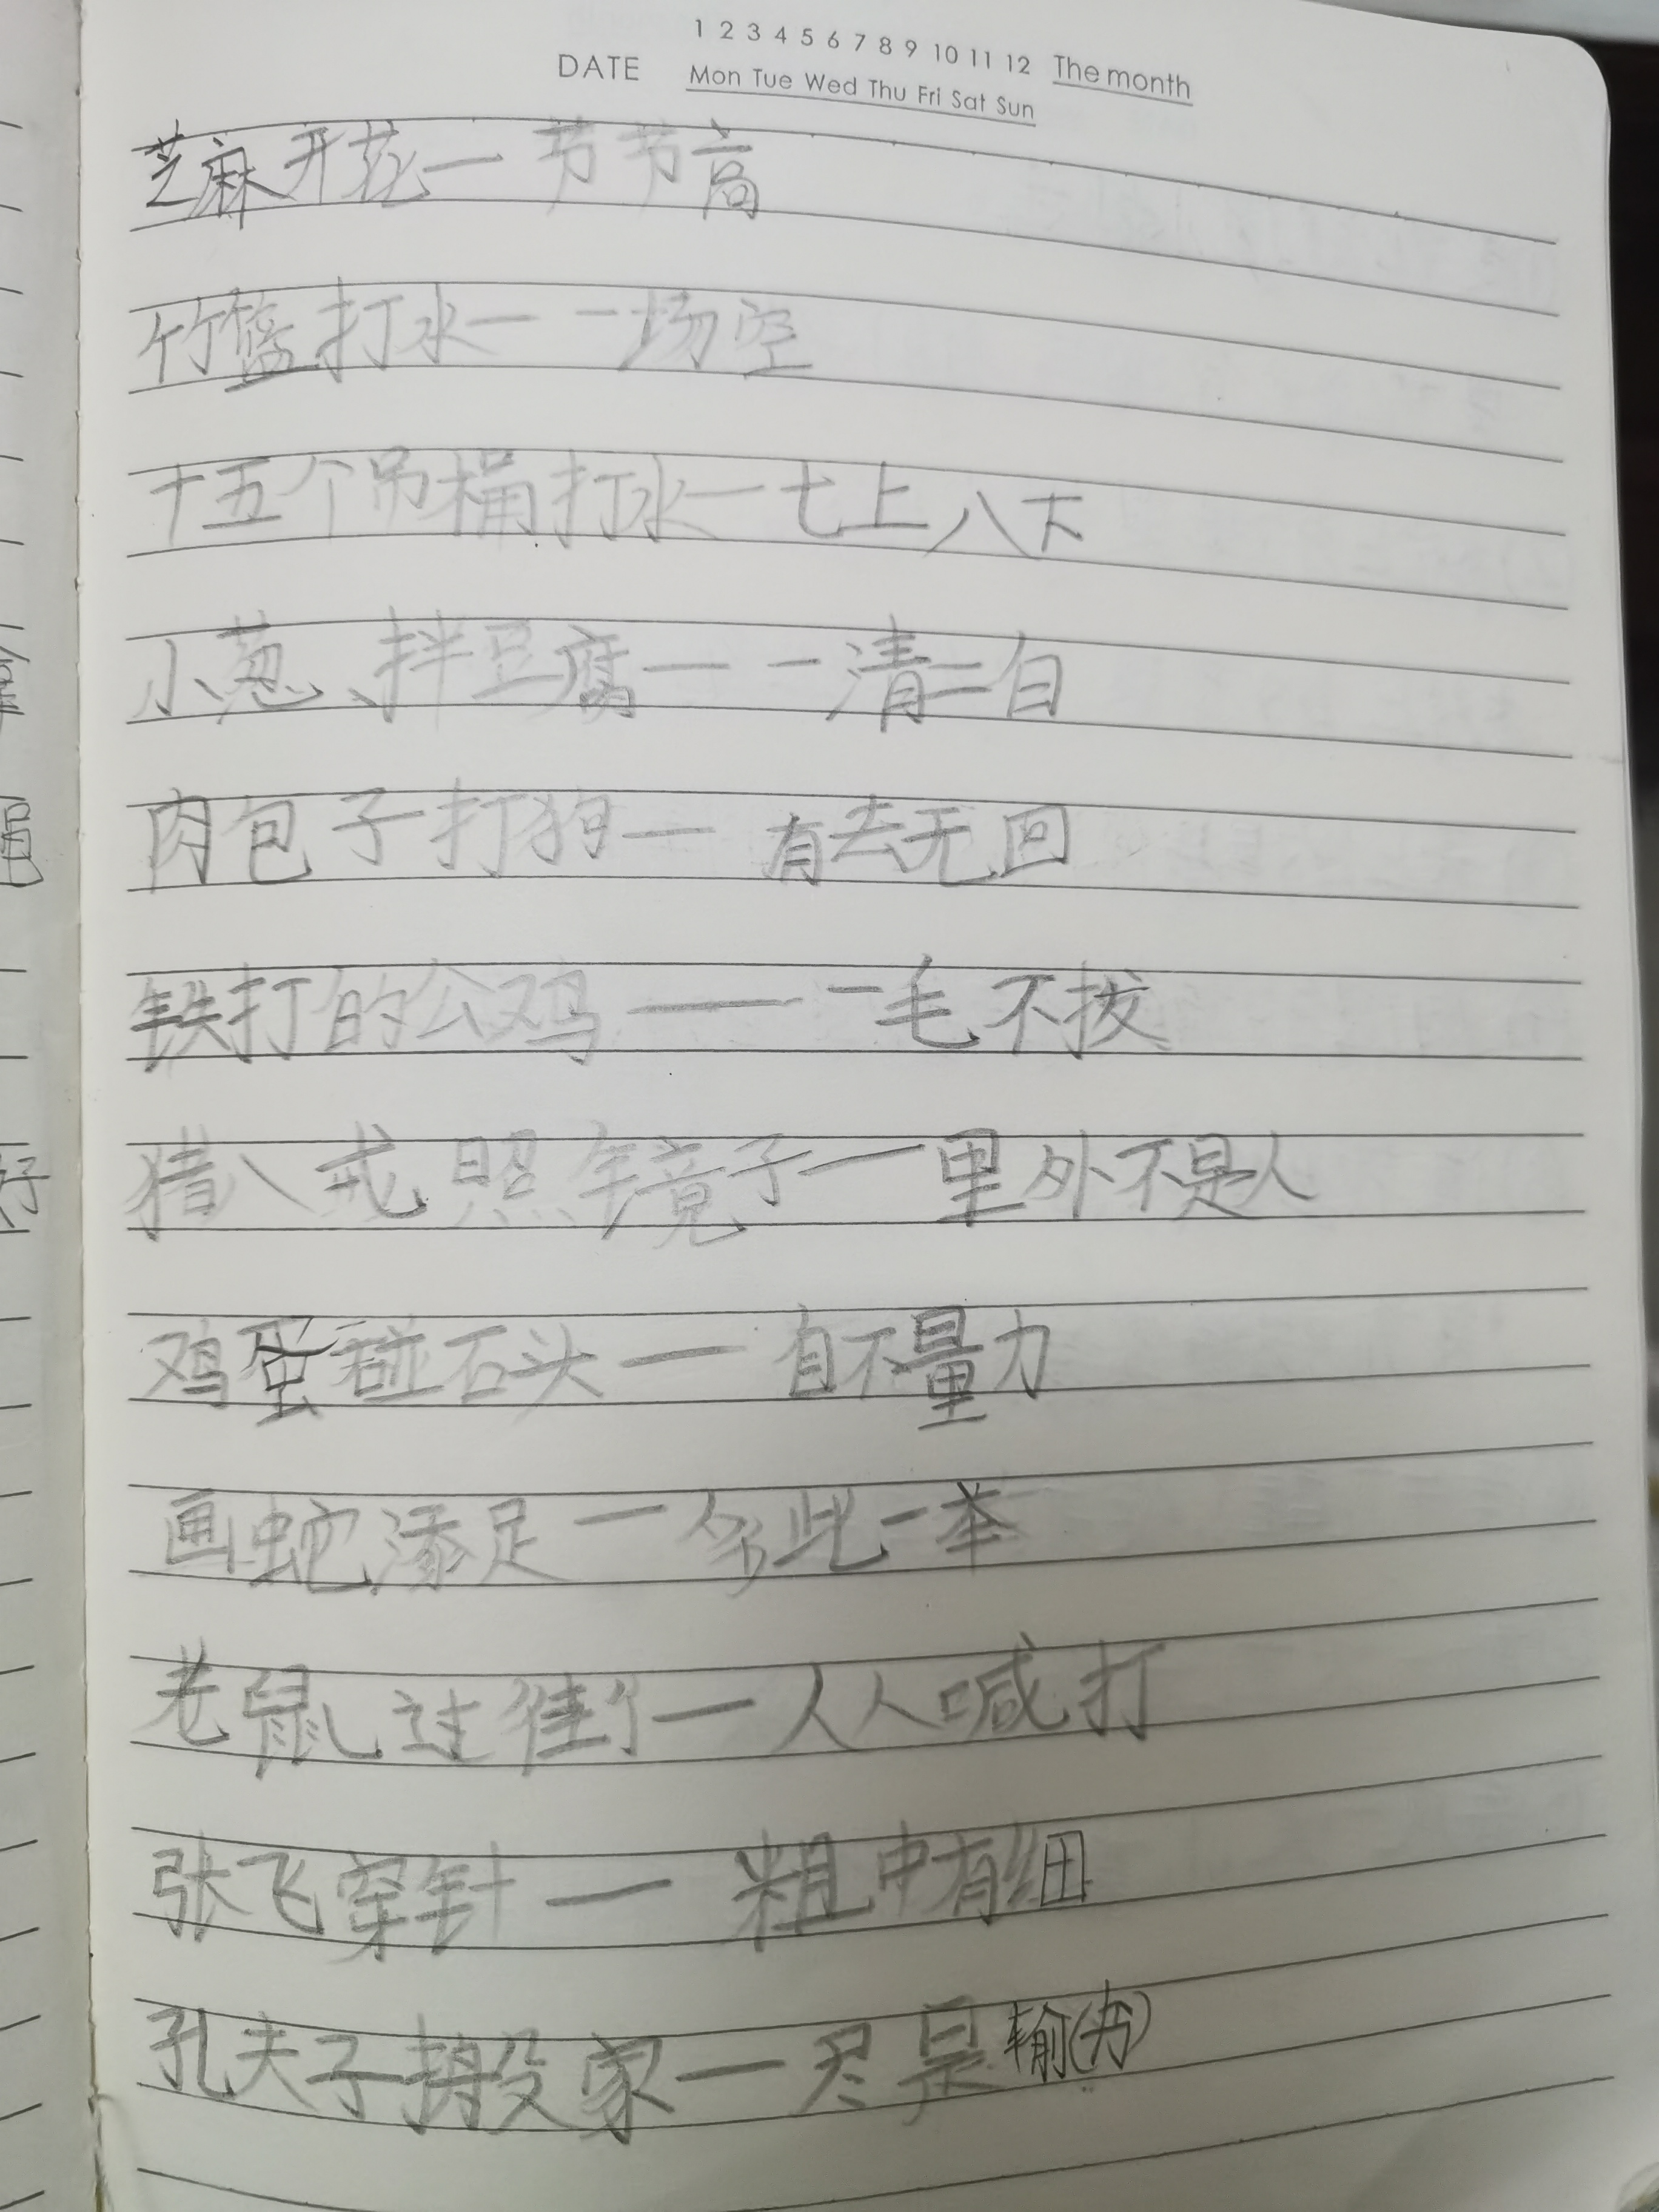 1 2 3 4 5 6 7 8 9 10 11 12 The month
DATE Mon Tue Wed Thu Fri Sat Sun
芝麻开花—节节高
竹篮打水—一场空
十五个吊桶打水—七上八下
小葱、拌豆腐—一清二白
肉包子打狗—有去无回
铁打的公鸡—一毛不拔
猪八戒照镜子—里外不是人
鸡蛋碰石头—自不量力
画蛇添足—多此一举
老鼠过街—人人喊打
张飞穿针—粗中有细
孔夫子搬家—尽是输(书)